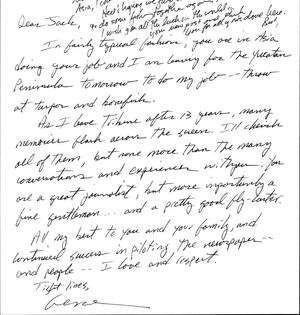 Dear Jack,
In fairly typical fashion, you are in Asia
doing your job and I am leaving for the Yucatan
Peninsula tomorrow to do my job -- throw
at tarpon and bonefish.
As I leave Tribune after 13 years, many
memories flash across the screen. I'll cherish
all of them, but none more than the many
conversations and experiences w/ you. You
are a great journalist, but more importantly a
fine gentleman... and a pretty good fly-caster.
All my best to you and your family, and
continued success in piloting the newspaper --
and people -- I love and respect.
Tight lines,
Gene